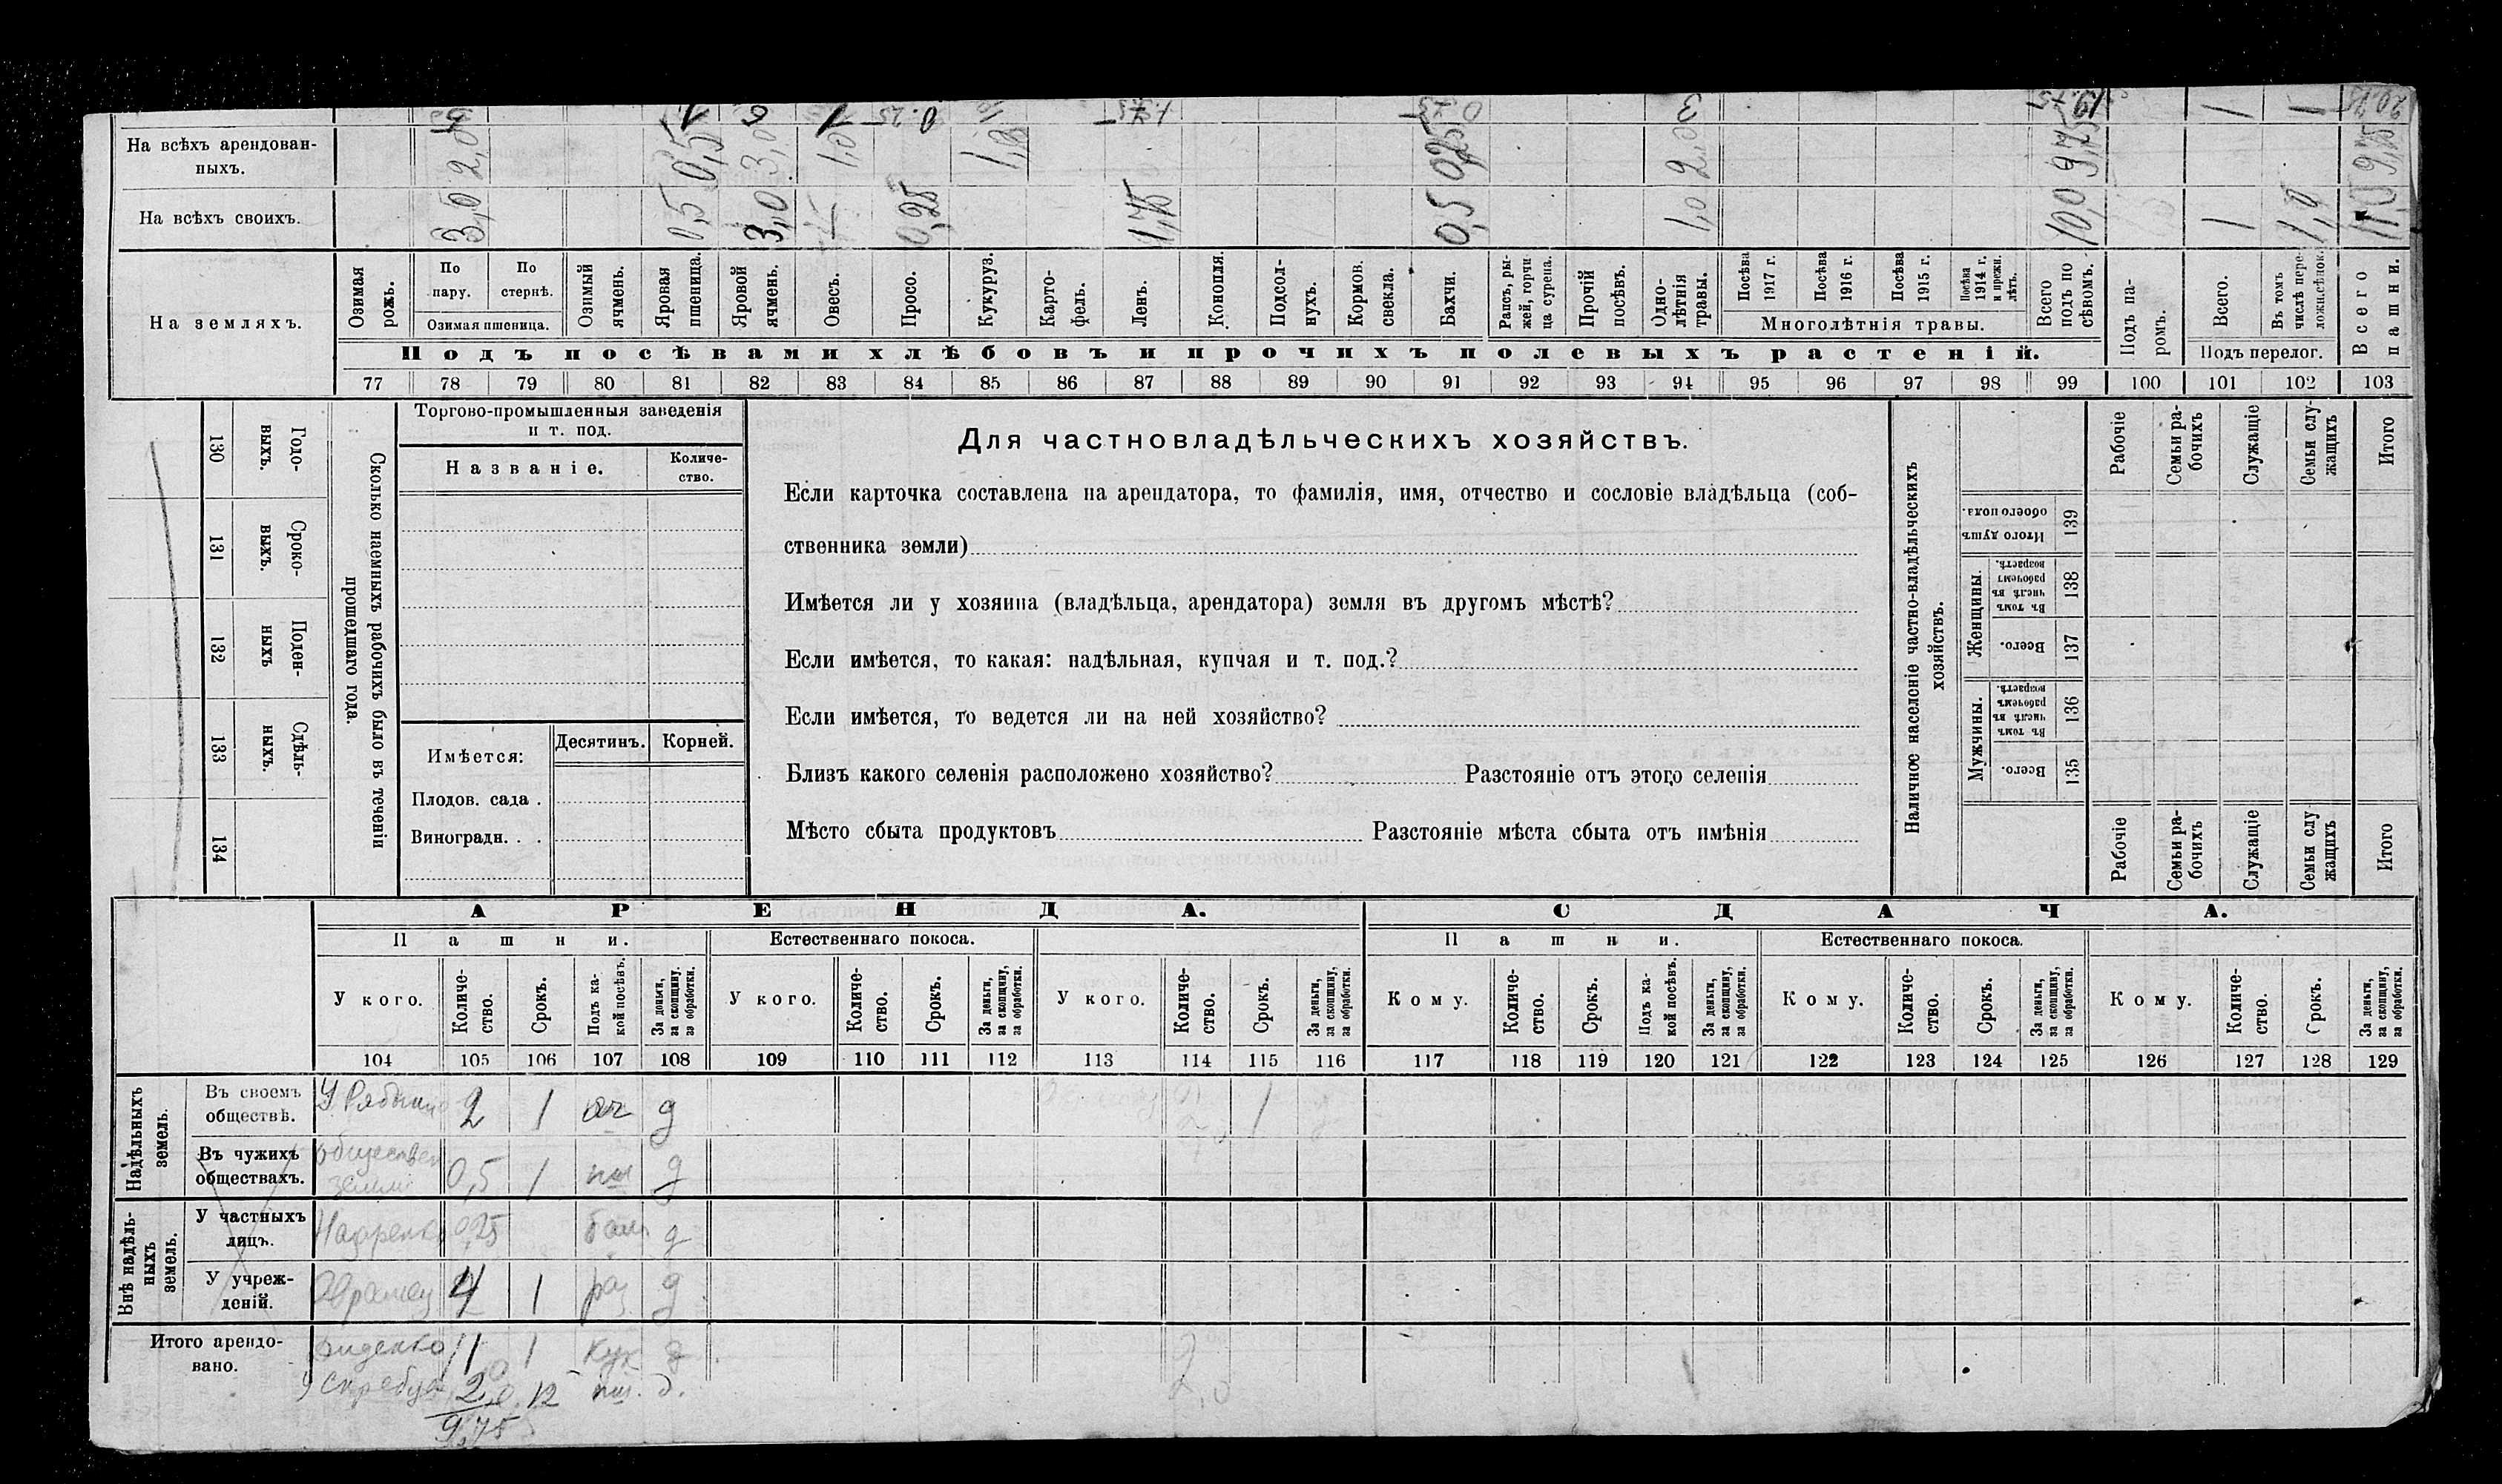 5 1 6 1 0.25 1.75 0.75 3 19.75 1 1 20.75
На всѣхъ арендован-
ныхъ.
2,0 0,5 3,0 1,0 1,0 0,25 2,0 9,75 9,75
На всѣхъ своихъ.
3,0 0,5 3,0 0,25 1,75 0,5 1,0 10,0 1 1,0 11,0
На земляхъ.
Озимая рожь.
По пару.
По стернѣ.
Озимая пшеница.
Озимый ячмень.
Яровая пшеница.
Яровой ячмень.
Овесъ.
Просо.
Кукуруз.
Карто-
фель.
Ленъ.
Конопля.
Подсол-
нухъ.
Кормов. свекла.
Бахчи.
Рапсъ, ры-
жей, горчи-
ца сурепа.
Прочій посѣвъ.
Одно-
лѣтнія травы.
Посѣва 1917 г.
Посѣва 1916 г.
Посѣва 1915 г.
Посѣва 1914 г. и прежн. лѣтъ.
Многолѣтнія травы.
Всего подъ по
сѣвомъ.
Подъ па-
ромъ.
Всего.
Въ томъ числѣ пере-
ложн.сѣнок.
Подъ перелог.
Всего пашни.
Подъ посѣвами хлѣбовъ и прочихъ полевыхъ растеній.
77 78 79 80 81 82 83 84 85 86 87 88 89 90 91 92 93 94 95 96 97 98 99 100 101 102 103
130 Годо-
выхъ.
131 Сроко-
выхъ.
132 Поден-
ныхъ
133 Сдѣль-
ныхъ.
134
Сколько наемныхъ рабочихъ было въ теченіи
прошедшаго года.
Торгово-промышленныя заведенія
и т. под.
Названіе.
Количе-
ство.
Имѣется:
Десятинъ.
Корней.
Плодов. сада .
Виноградн. . .
Для частновладѣльческихъ хозяйствъ.
Если карточка составлена на арендатора, то фамилія, имя, отчество и сословіе владѣльца (соб-
ственника земли)
Имѣется ли у хозяина (владѣльца, арендатора) земля въ другомъ мѣстѣ?
Если имѣется, то какая: надѣльная, купчая и т. под.?
Если имѣется, то ведется ли на ней хозяйство?
Близъ какого селенія расположено хозяйство? Разстояніе отъ этого селенія
Мѣсто сбыта продуктовъ Разстояніе мѣста сбыта отъ имѣнія
Наличное населеніе частно-владѣльческихъ
хозяйствъ.
Рабочіе
Семьи ра-
бочихъ
Служащіе
Семьи слу-
жащихъ
Итого
Итого душъ обоего пола. 139
Женщины.
Въ томъ числѣ въ рабочемъ возрастѣ. 138
Всего. 137
Мужчины.
Въ томъ числѣ въ рабочемъ возрастѣ. 136
Всего. 135
Рабочіе
Семьи ра-
бочихъ
Служащіе
Семьи слу
жащихъ
Итого
АРЕНДА. СДАЧА.
Пашни. Естественнаго покоса. Пашни. Естественнаго покоса.
У кого.
Количе-
ство.
Срокъ.
Подъ ка-
кой посѣвъ.
За деньги, за скопщину. за обработки.
У кого.
Количе-
ство.
Срокъ.
За деньги, за скопщину, за обработки.
У кого.
Количе-
ство.
Срокъ.
За деньги, за скопщину, за обработки.
Кому.
Количе-
ство.
Срокъ.
Подъ ка-
кой посѣвъ.
За деньги, за скопщину, за обработки.
Кому.
Количе-
ство.
Срокъ.
За деньги, за скопщину, за обработки.
Кому.
Количе-
ство.
Срокъ.
За деньги, за скопщину, за обработки.
104 105 106 107 108 109 110 111 112 113 114 115 116 117 118 119 120 121 122 123 124 125 126 127 128 129
Надѣльныхъ
земель.
Въ своемъ
обществѣ.
У 2 1 яч д 1
Въ чужихъ
обществахъ.
обществен
земли 0,5 1 пш д
Внѣ надѣль-
ныхъ
земель.
У частныхъ
лицъ.
0,25 д
У учреж-
деній.
4 1 раз д
Итого арендо-
вано.
1 1 кук д
У 2,0 12 пш. д. 2,0
9,75